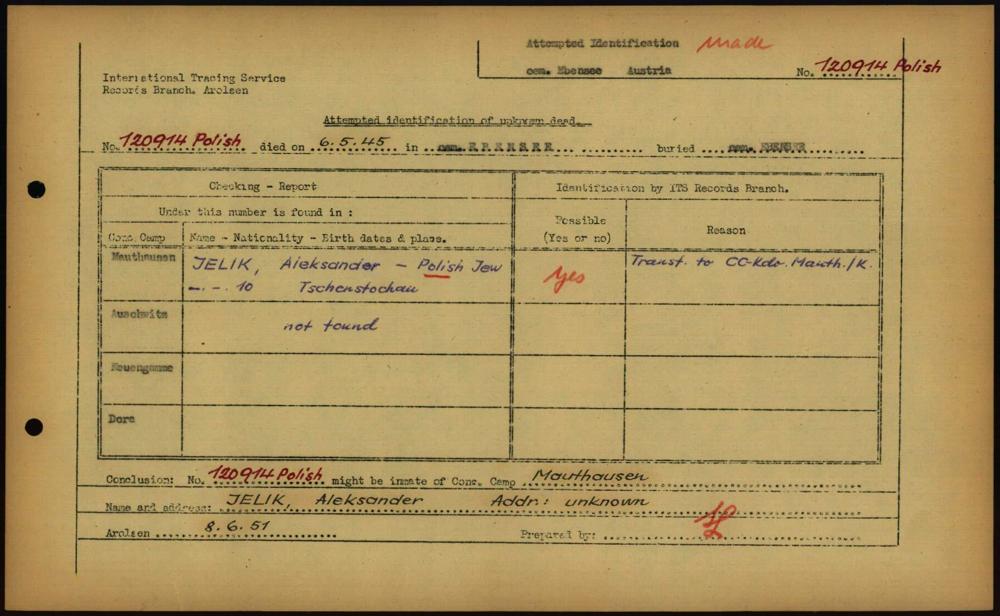 Attempted Identification made
cem. Ebensee Austria
No. 120914 Polish
International Tracing Service
Records Branch. Arolsen
Attempted identification of unknown dead.
No. 120914 Polish died on 6.5.45 in cem. EBENSEE buried cem. EBENSEE
Checking - Report
Identification by ITS Records Branch.
Under this number is found in :
Possible
(Yes or no)
Reason
Conc. Camp
Name - Nationality - Birth dates & place.
Mauthausen
JELIK, Aleksander - Polish Jew
-.-. 10 Tschenstochau
Yes
Transf. to CC-Kdo. Mauth./K.
Auschwitz
not found
Neuengamme
Dora
Conclusion: No. 120914 Polish might be inmate of Conc. Camp Mauthausen
Name and address: JELIK, Aleksander Addr.: unknown
Arolsen 8.6.51
Prepared by: